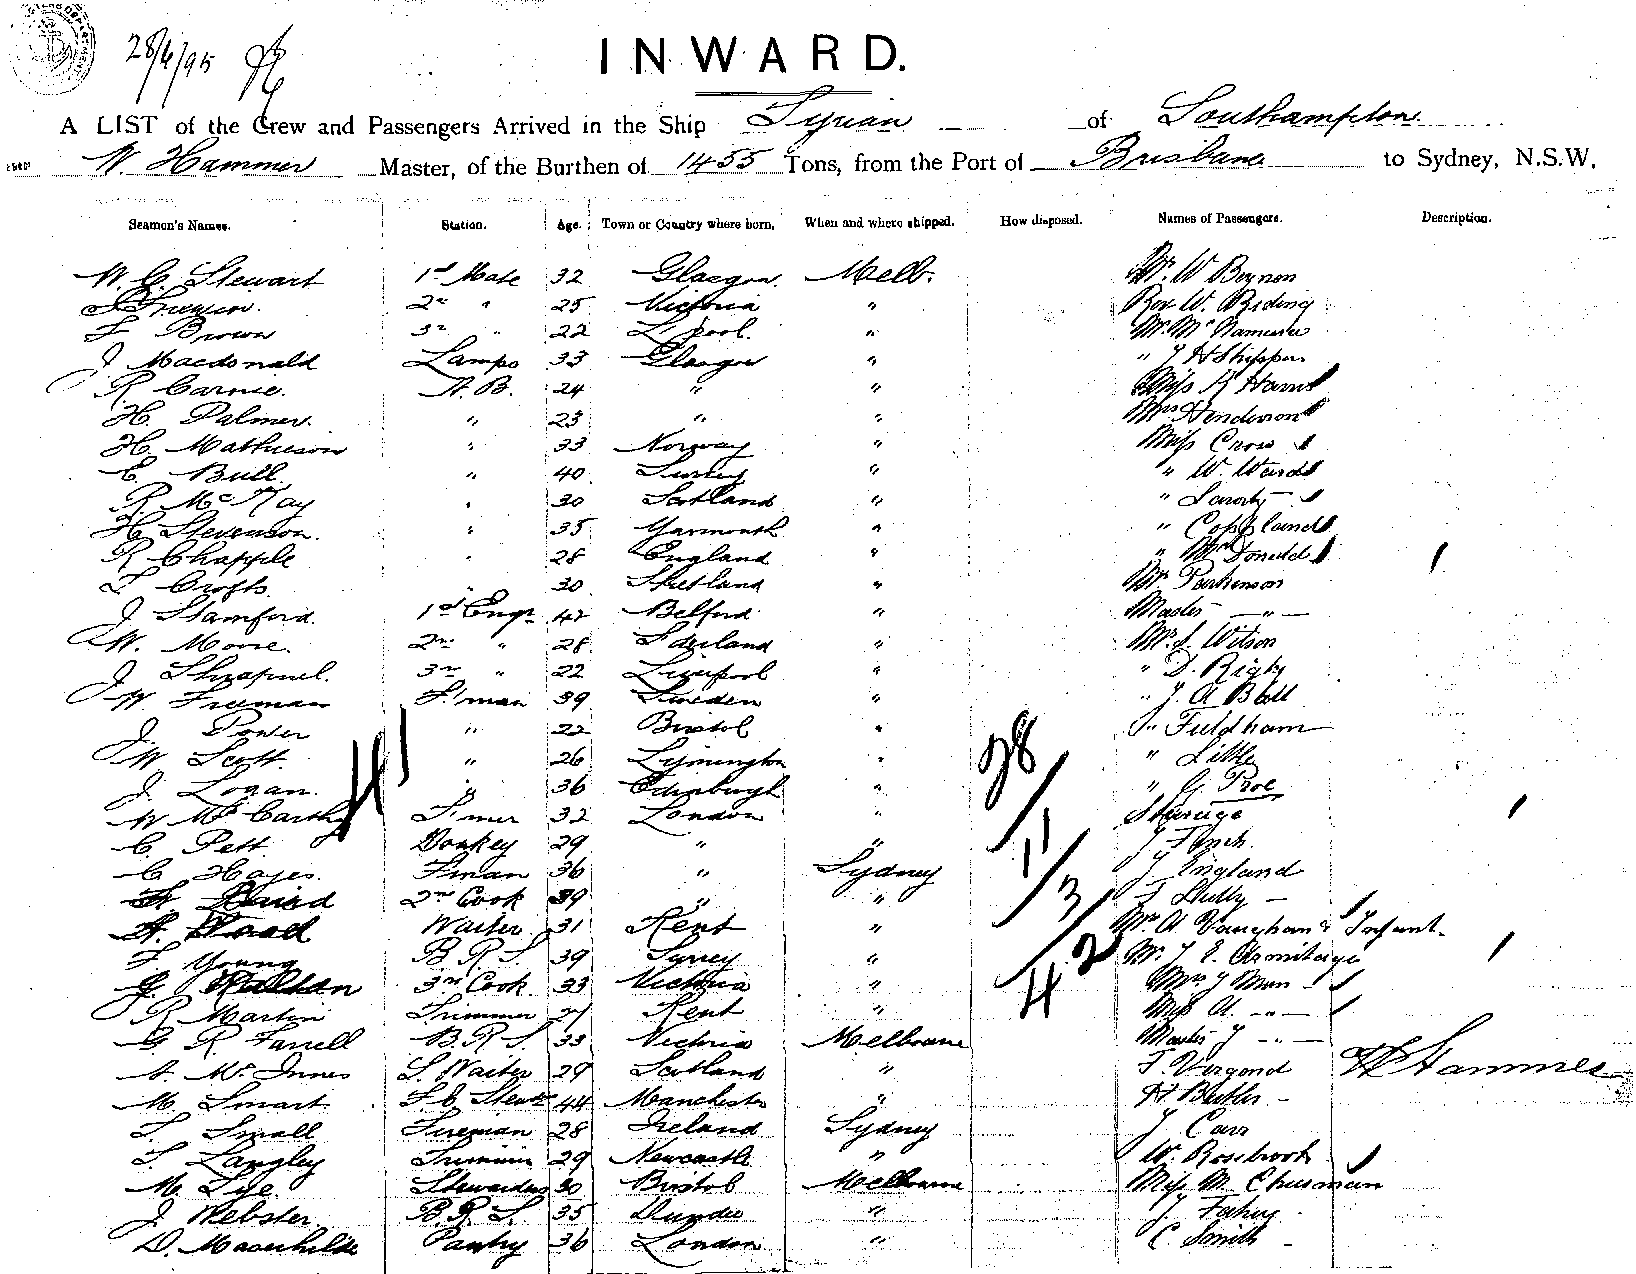 28/6/95
INWARD.
A LIST of the Crew and Passengers Arrived in the Ship Syrian of Southampton
W. Hammer Master, of the Burthen of 1455 Tons, from the Port of Brisbane to Sydney, N.S.W.
Seamen's Names. Station. Age. Town or Country where born. When and where shipped. How disposed. Names of Passengers. Description.
W. C. Stewart 1st Mate 32 Glasgow Melb. Mr. W Beynon
2nd " 25 Victoria " Rev W.
F Brown 3rd " 22 L'pool. "
J Macdonald Lamps 33 Glasgow " " J H Shipper
R Carnie. A.B. 24 " " Miss K
H. Palmer. " 23 " " Mrs Henderson
H. Mathieson " 33 Norway " Miss Crow
C. Bull " 40 Turkey " " W. Ward
R McKay " 30 Scotland " "
H Stevenson. " 35 Yarmouth " " Coppland
R Chapple " 28 England " " McDonald
L Crofts. " 30 Shetland " Mr. Parkinson
J Stamford. 1st Engr 42 Belford " Master — " —
W. Moore. 2nd " 28 S'derland " Mr. S. Wilson
J Shrapnel. 3rd " 22 Liverpool " " D. Rigby
W Freeman F'man 39 Sweden " " J. A Ball
J. Power " 22 Bristol " " Fuldham
W Scott. " 26 Lymington " " Little
J. Logan. " 36 Edinburgh " " G. Proe
W McCarthy T'mer 32 London " Steerage
C. Pett. Donkey 29 " " J Finch.
C Hayes. F'man 36 " Sydney J England
2nd Cook 39 " "
Waiter 31 Kent " Mrs A Vaughan & Infant
F Young B.R.S. 39 Surrey " Mr. J. E. Armitage
G. 3rd Cook 33 Victoria " Mrs J Man
R Martin Trimmer Kent " Miss A. - " -
G R Farrell B.R.S. 33 Victoria Melbourne Master J - " -
A. McInnes S. Waiter 29 Scotland " T Vergond W Hammer
M. Smart 44 Manchester " H Butler
T. Small Fireman 28 Ireland Sydney J Carr
T. Langley Trimmer 29 Newcastle " W. Rosebrook
M. Lye Stewardess 30 Bristol Melbourne Miss M. Chusman
J Webster B.R.S. 35 Dundee " J. Fahey
D. Pantry 36 London " C Smith
28
11
3
2
4